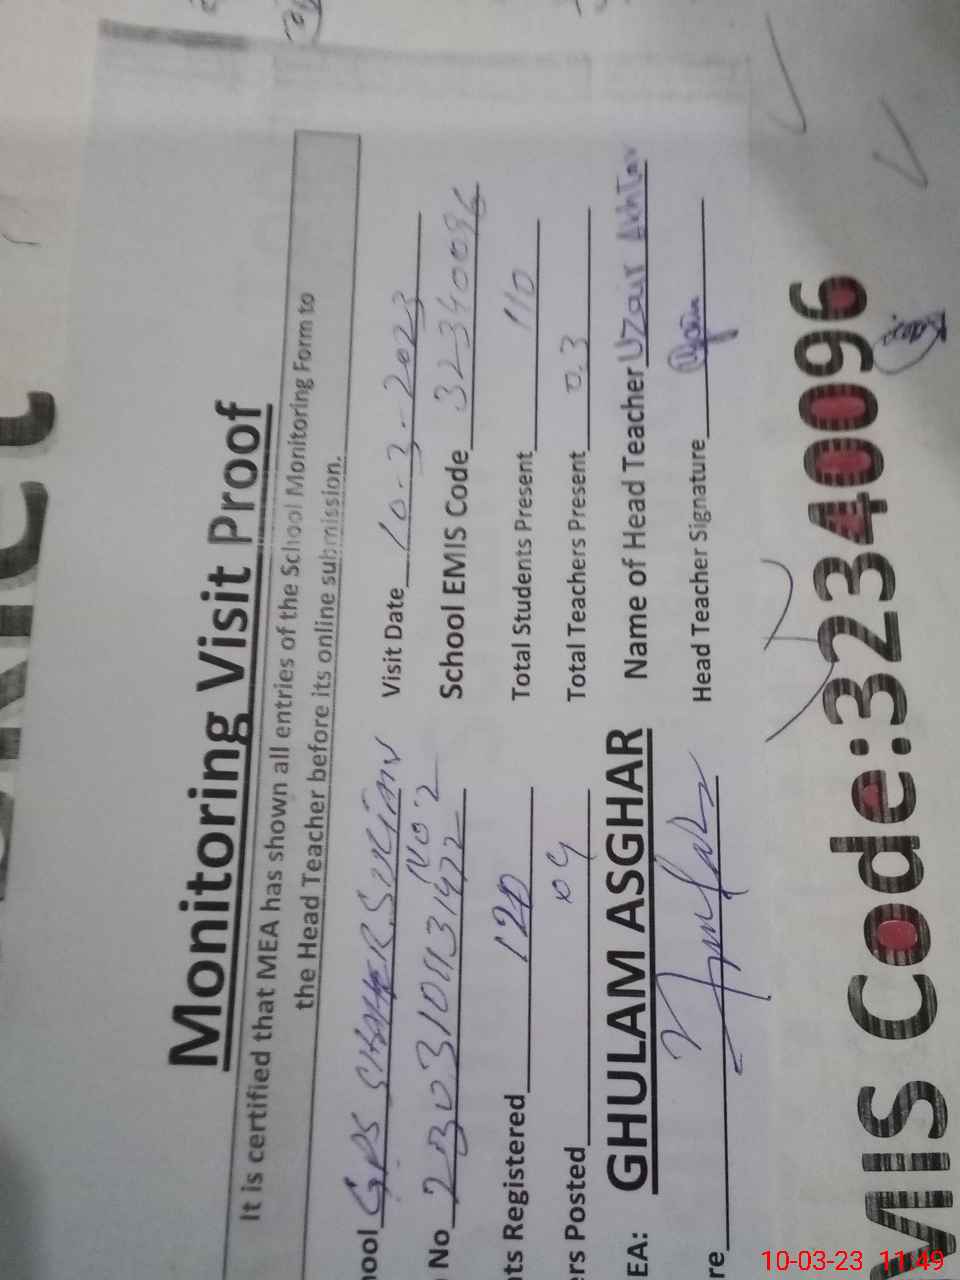 Monitoring Visit Proof
It is certified that MEA has shown all entries of the School Monitoring Form to
the Head Teacher before its online submission.
hool GPS Visit Date 10-3-2023
No.2
No School EMIS Code 32340096
ts Registered 120 Total Students Present 110
ers Posted 04 Total Teachers Present 03
EA: GHULAM ASGHAR Name of Head Teacher Uzair Akhtar
re Head Teacher Signature
MIS Code:32340096
10-03-23 11:49